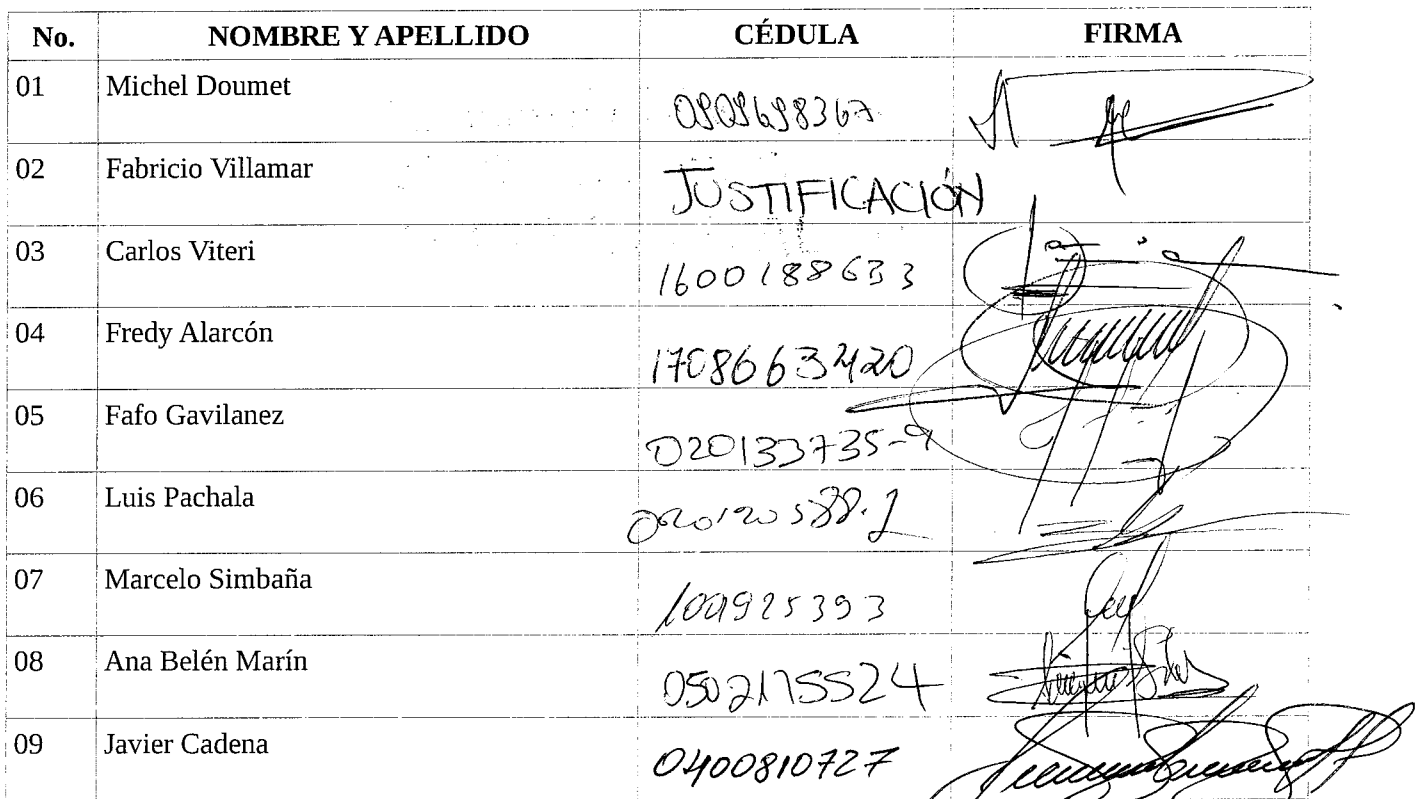 No. NOMBRE Y APELLIDO CÉDULA FIRMA
01 Michel Doumet 0909698367
02 Fabricio Villamar JUSTIFICACIÓN
03 Carlos Viteri 1600188633
04 Fredy Alarcón
05 Fafo Gavilanez 020133735-9
06 Luis Pachala
07 Marcelo Simbaña
08 Ana Belén Marín 0502175524
09 Javier Cadena 0400810727